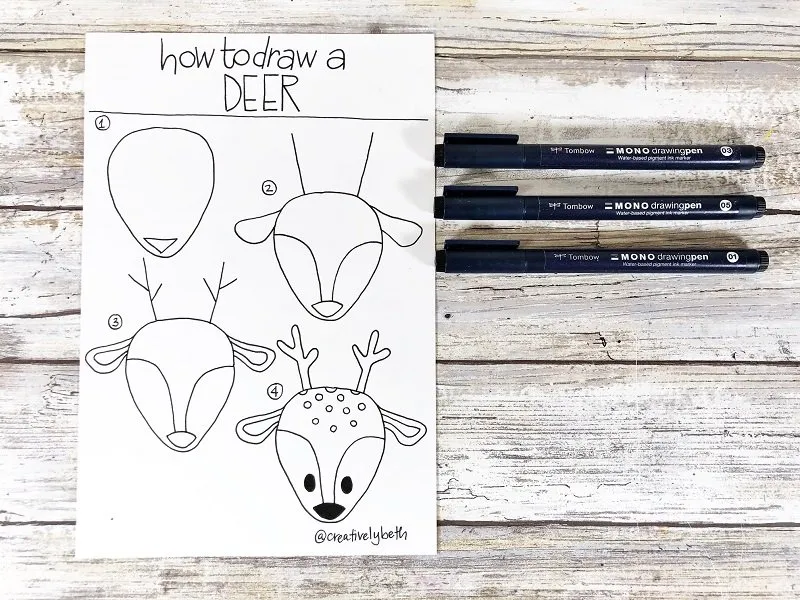 how to draw a
DEER
1
2
3
4
@creativelybeth
Tombow MONO drawingpen 03
Water-based pigment ink marker
Tombow MONO drawingpen 05
Water-based pigment ink marker
Tombow MONO drawingpen 01
Water-based pigment ink marker